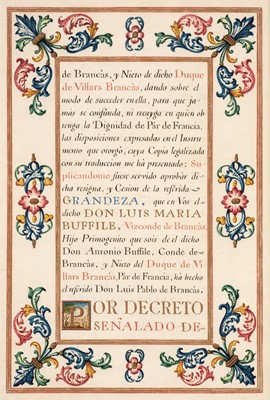 de Brancàs, y Nieto de dicho Duque
de Villars Brancàs, dando sobre el
modo de succeder en ella, para que ja-
màs se confunda, ni recayga en quien ob-
tenga la Dignidad de Pàr de Francia,
las disposiciones expresadas en el Instru-
mento que otorgò, cuya Copia legalizada
con su traduccion me hà presentado: Su-
plicandome fuese servido aprobàr dicha
resigna, y Cesion de la referida
GRANDEZA, que en Vos el
dicho DON LUIS MARIA
BUFFILE, Vizconde de Brancàs,
Hijo Primogenito que sois de el dicho
Don Antonio Buffile, Conde de
Brancàs, y Nieto del Duque de Vi-
llars Brancàs, Pàr de Francia, hà hecho
el referido Don Luis Pablo de Brancàs.
POR DECRETO
SEÑALADO DE-